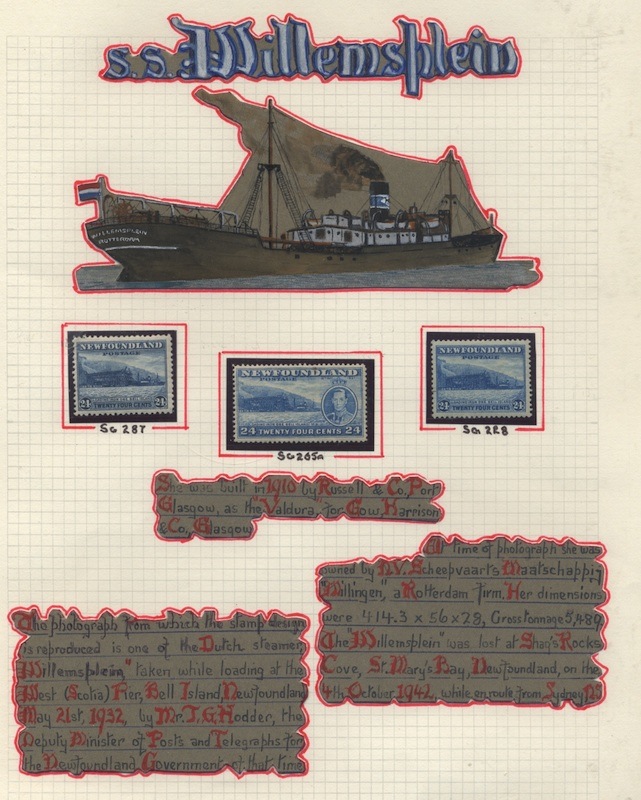 s.s. Willemsplein
WILLEMSPLEIN
ROTTERDAM
NEWFOUNDLAND
POSTAGE
24 24
TWENTY FOUR CENTS
SG 287
NEWFOUNDLAND
POSTAGE
24 TWENTY FOUR CENTS 24
SG 265A
NEWFOUNDLAND
POSTAGE
24 24
TWENTY FOUR CENTS
SG 228
She was built in 1910 by Russell & Co, Port
Glasgow, as the "Valdura", for Gow, Harrison
& Co., Glasgow
At time of photograph she was
owned by N.V. Scheepvaarts Maatschappij
"Millingen," a Rotterdam firm. Her dimensions
were 414.3 x 56 x 28, Gross tonnage 5,489
The "Willemsplein" was lost at Shag's Rocks
Cove, St. Mary's Bay, Newfoundland, on the
4th October 1942, while en route from Sydney NS
The photograph from which the stamp design
is reproduced is one of the Dutch steamer,
Willemsplein" taken while loading at the
West (Scotia) Pier, Bell Island, Newfoundland
May 21st, 1932, by Mr. T.G. Hodder, the
Deputy Minister of Posts and Telegraphs for
the Newfoundland Government of that time